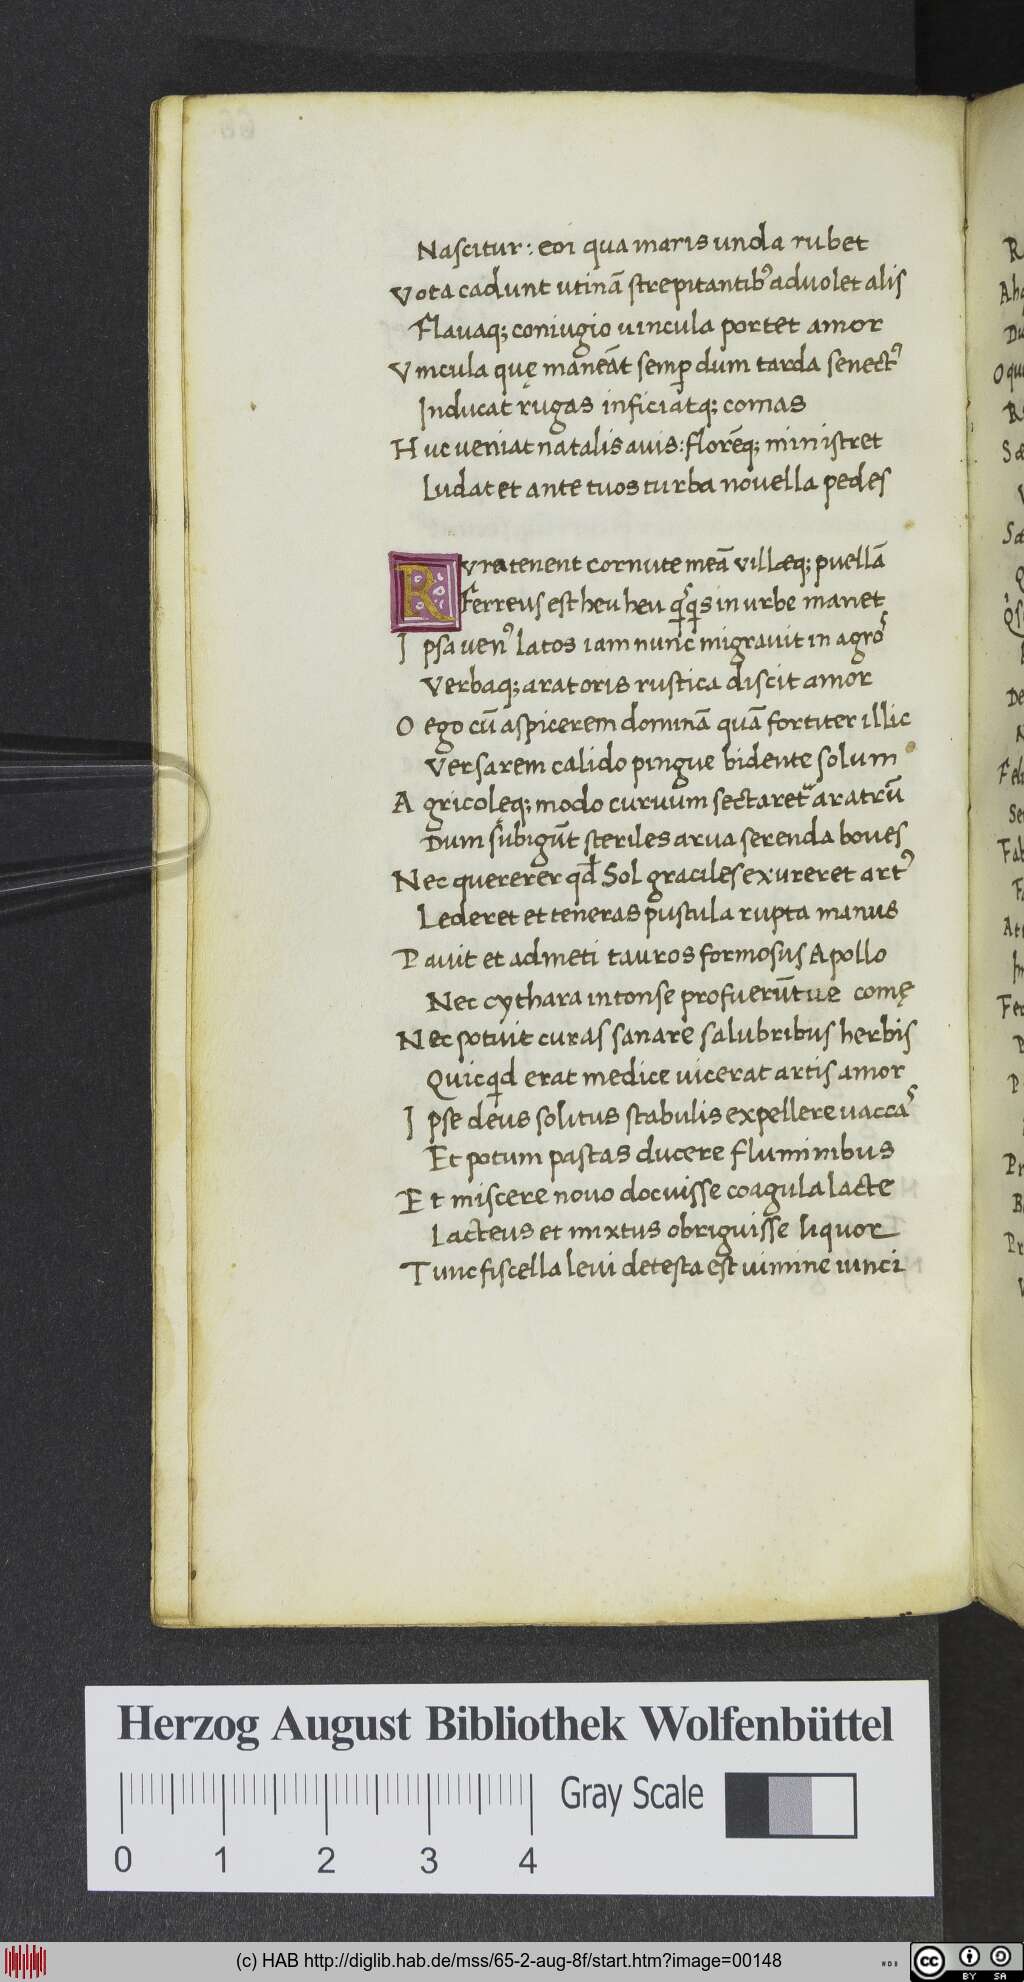 Nascitur: eoi qua maris unda rubet
Vota cadunt utinã strepitantib⁹ aduolet alis
Flauaq; coniugio uincula portet amor
Vincula quę maneãt semꝑ dum tarda senect⁹
Inducat rugas inficiatq; comas
Huc ueniat natalis auis: florẽq; ministret
Ludat et ante tuos turba nouella pedes
Rvra tenent cornute meã villæq; puellã
Ferreus est heu heu qͥsqͥs in urbe manet
Ipsa uen⁹ latos iam nunc migrauit in agros
Verbaq; aratoris rustica discit amor
O ego cũ aspicerem dominã quã fortiter illic
Versarem calido pingue bidente solum
Agricoleq; modo curuum sectaret᷑ aratrũ
Dum subigũt steriles arua serenda boues
Nec quererer qđ Sol graciles exureret art⁹
Lederet et teneras pustula rupta manus
Pauit et admeti tauros formosus Apollo
Nec cythara intonse profuerũt ue comę
Nec potuit curas sanare salubribus herbis
Quicqͥd erat medice uicerat artis amor
Ipse deus solitus stabulis expellere uaccas
Et potum pastas ducere fluminibus
Et miscere nouo docuisse coagula lacte
Lacteus et mixtus obriguisse liquor
Tunc fiscella leui detesta est uimine iunci
Herzog August Bibliothek Wolfenbüttel
Gray Scale
0 1 2 3 4
(c) HAB http://diglib.hab.de/mss/65-2-aug-8f/start.htm?image=00148
cc BY SA